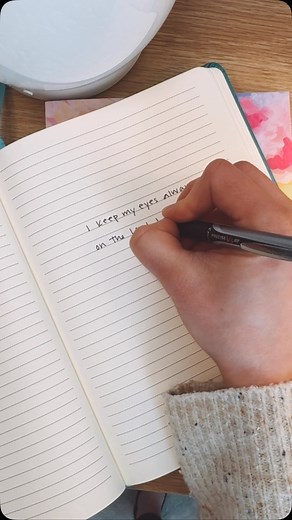 I keep my eyes always
on the